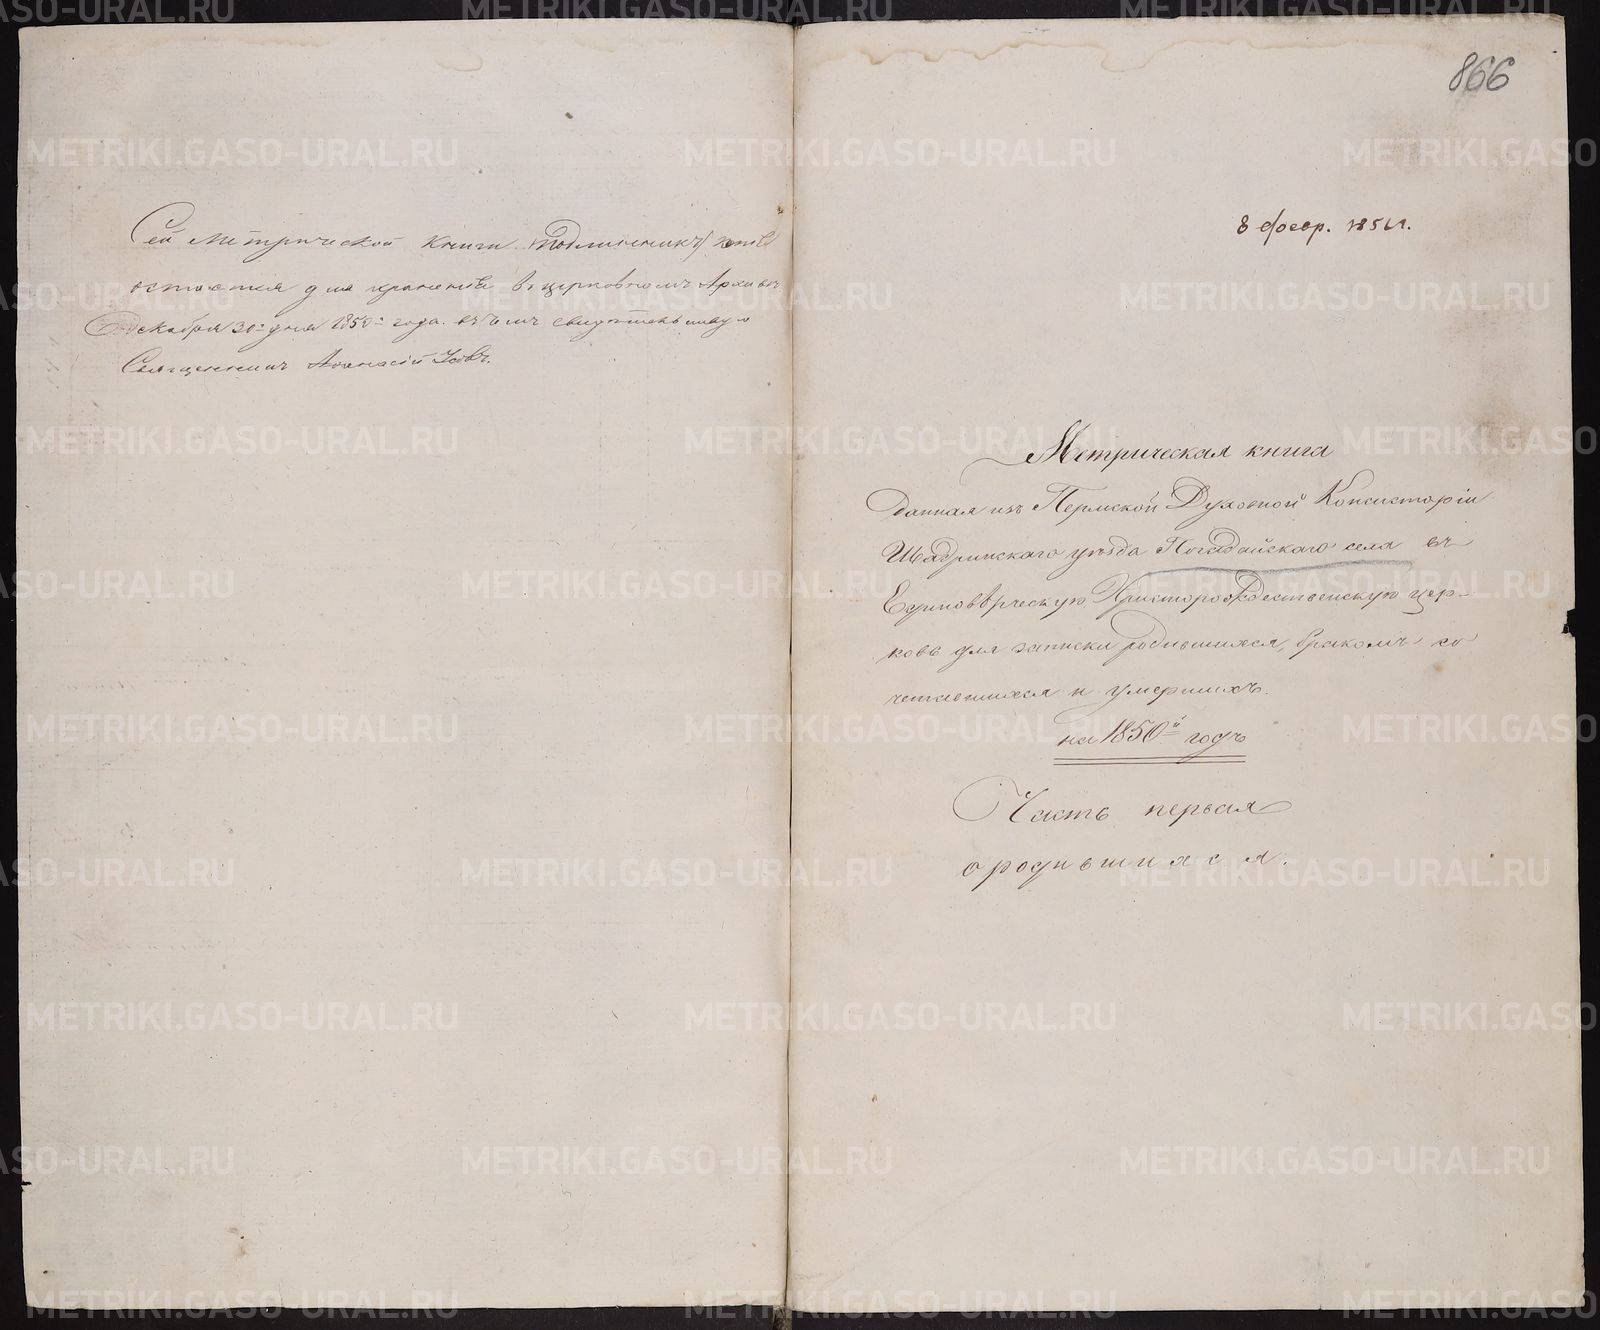 Сей метрической книги подлинникъ
остается для хранения въ церковномъ Архивѣ
Декабря 30 дня 1850 года. въ чемъ свидѣтельствую
Священникъ Аѳанасій
866
8 февр. 1851 г.
Метрическая книга
данная изъ Пермской Духовной Консисторіи
Шадринскаго уѣзда Погадайскаго села въ
Единовѣрческую Христорождественскую цер-
ковь для записки родившихся, бракомъ со
четавшихся и умершихъ.
на 1850й годъ
Часть первая
о родившихся.
METRIKI.GASO-URAL.RU